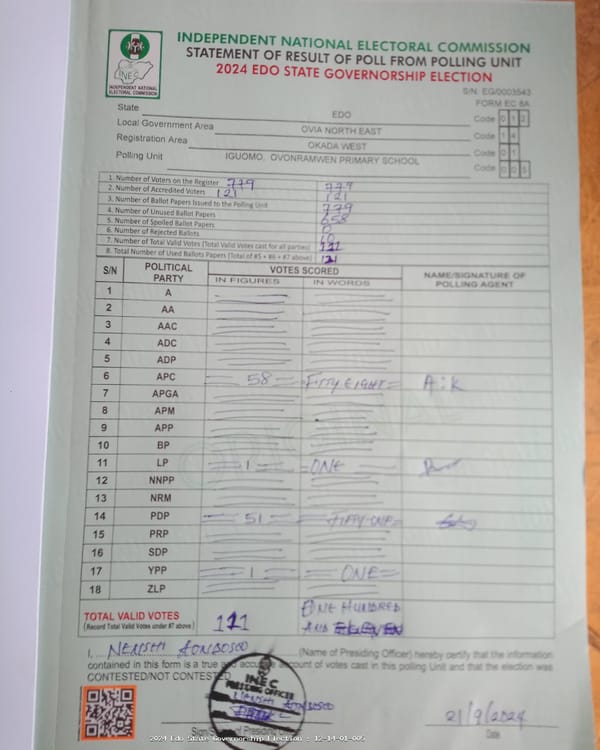 INEC
INDEPENDENT NATIONAL
ELECTORAL COMMISSION
INDEPENDENT NATIONAL ELECTORAL COMMISSION
STATEMENT OF RESULT OF POLL FROM POLLING UNIT
2024 EDO STATE GOVERNORSHIP ELECTION
S/N EG/0003543
FORM EC 8A
State EDO Code 0 1 2
Local Government Area OVIA NORTH EAST Code 1 4
Registration Area OKADA WEST Code 0 1
Polling Unit IGUOMO, OVONRAMWEN PRIMARY SCHOOL Code 0 0 5
1. Number of Voters on the Register 779 779
2. Number of Accredited Voters 121 121
3. Number of Ballot Papers Issued to the Polling Unit 779
4. Number of Unused Ballot Papers 658
5. Number of Spoiled Ballot Papers 0
6. Number of Rejected Ballots 10
7. Number of Total Valid Votes (Total Valid Votes cast for all parties)
8. Total Number of Used Ballots Papers (Total of #5 + #6 + #7 above) 121
S/N POLITICAL PARTY VOTES SCORED NAME/SIGNATURE OF POLLING AGENT
IN FIGURES IN WORDS
1 A
2 AA
3 AAC
4 ADC
5 ADP
6 APC 58 FIFTY EIGHT A.K
7 APGA
8 APM
9 APP
10 BP
11 LP 1 ONE
12 NNPP
13 NRM
14 PDP 51 FIFTY-ONE
15 PRP
16 SDP
17 YPP 1 ONE
18 ZLP
TOTAL VALID VOTES 111 ONE HUNDRED
(Record Total Valid Votes under #7 above) AND ELEVEN
I, (Name of Presiding Officer) hereby certify that the information
contained in this form is a true and accurate account of votes cast in this polling Unit and that the election was
CONTESTED/NOT CONTESTED
INEC
PRESIDING OFFICER
21/9/2024
Date
2024 Edo State Governorship Election : 12-14-01-005